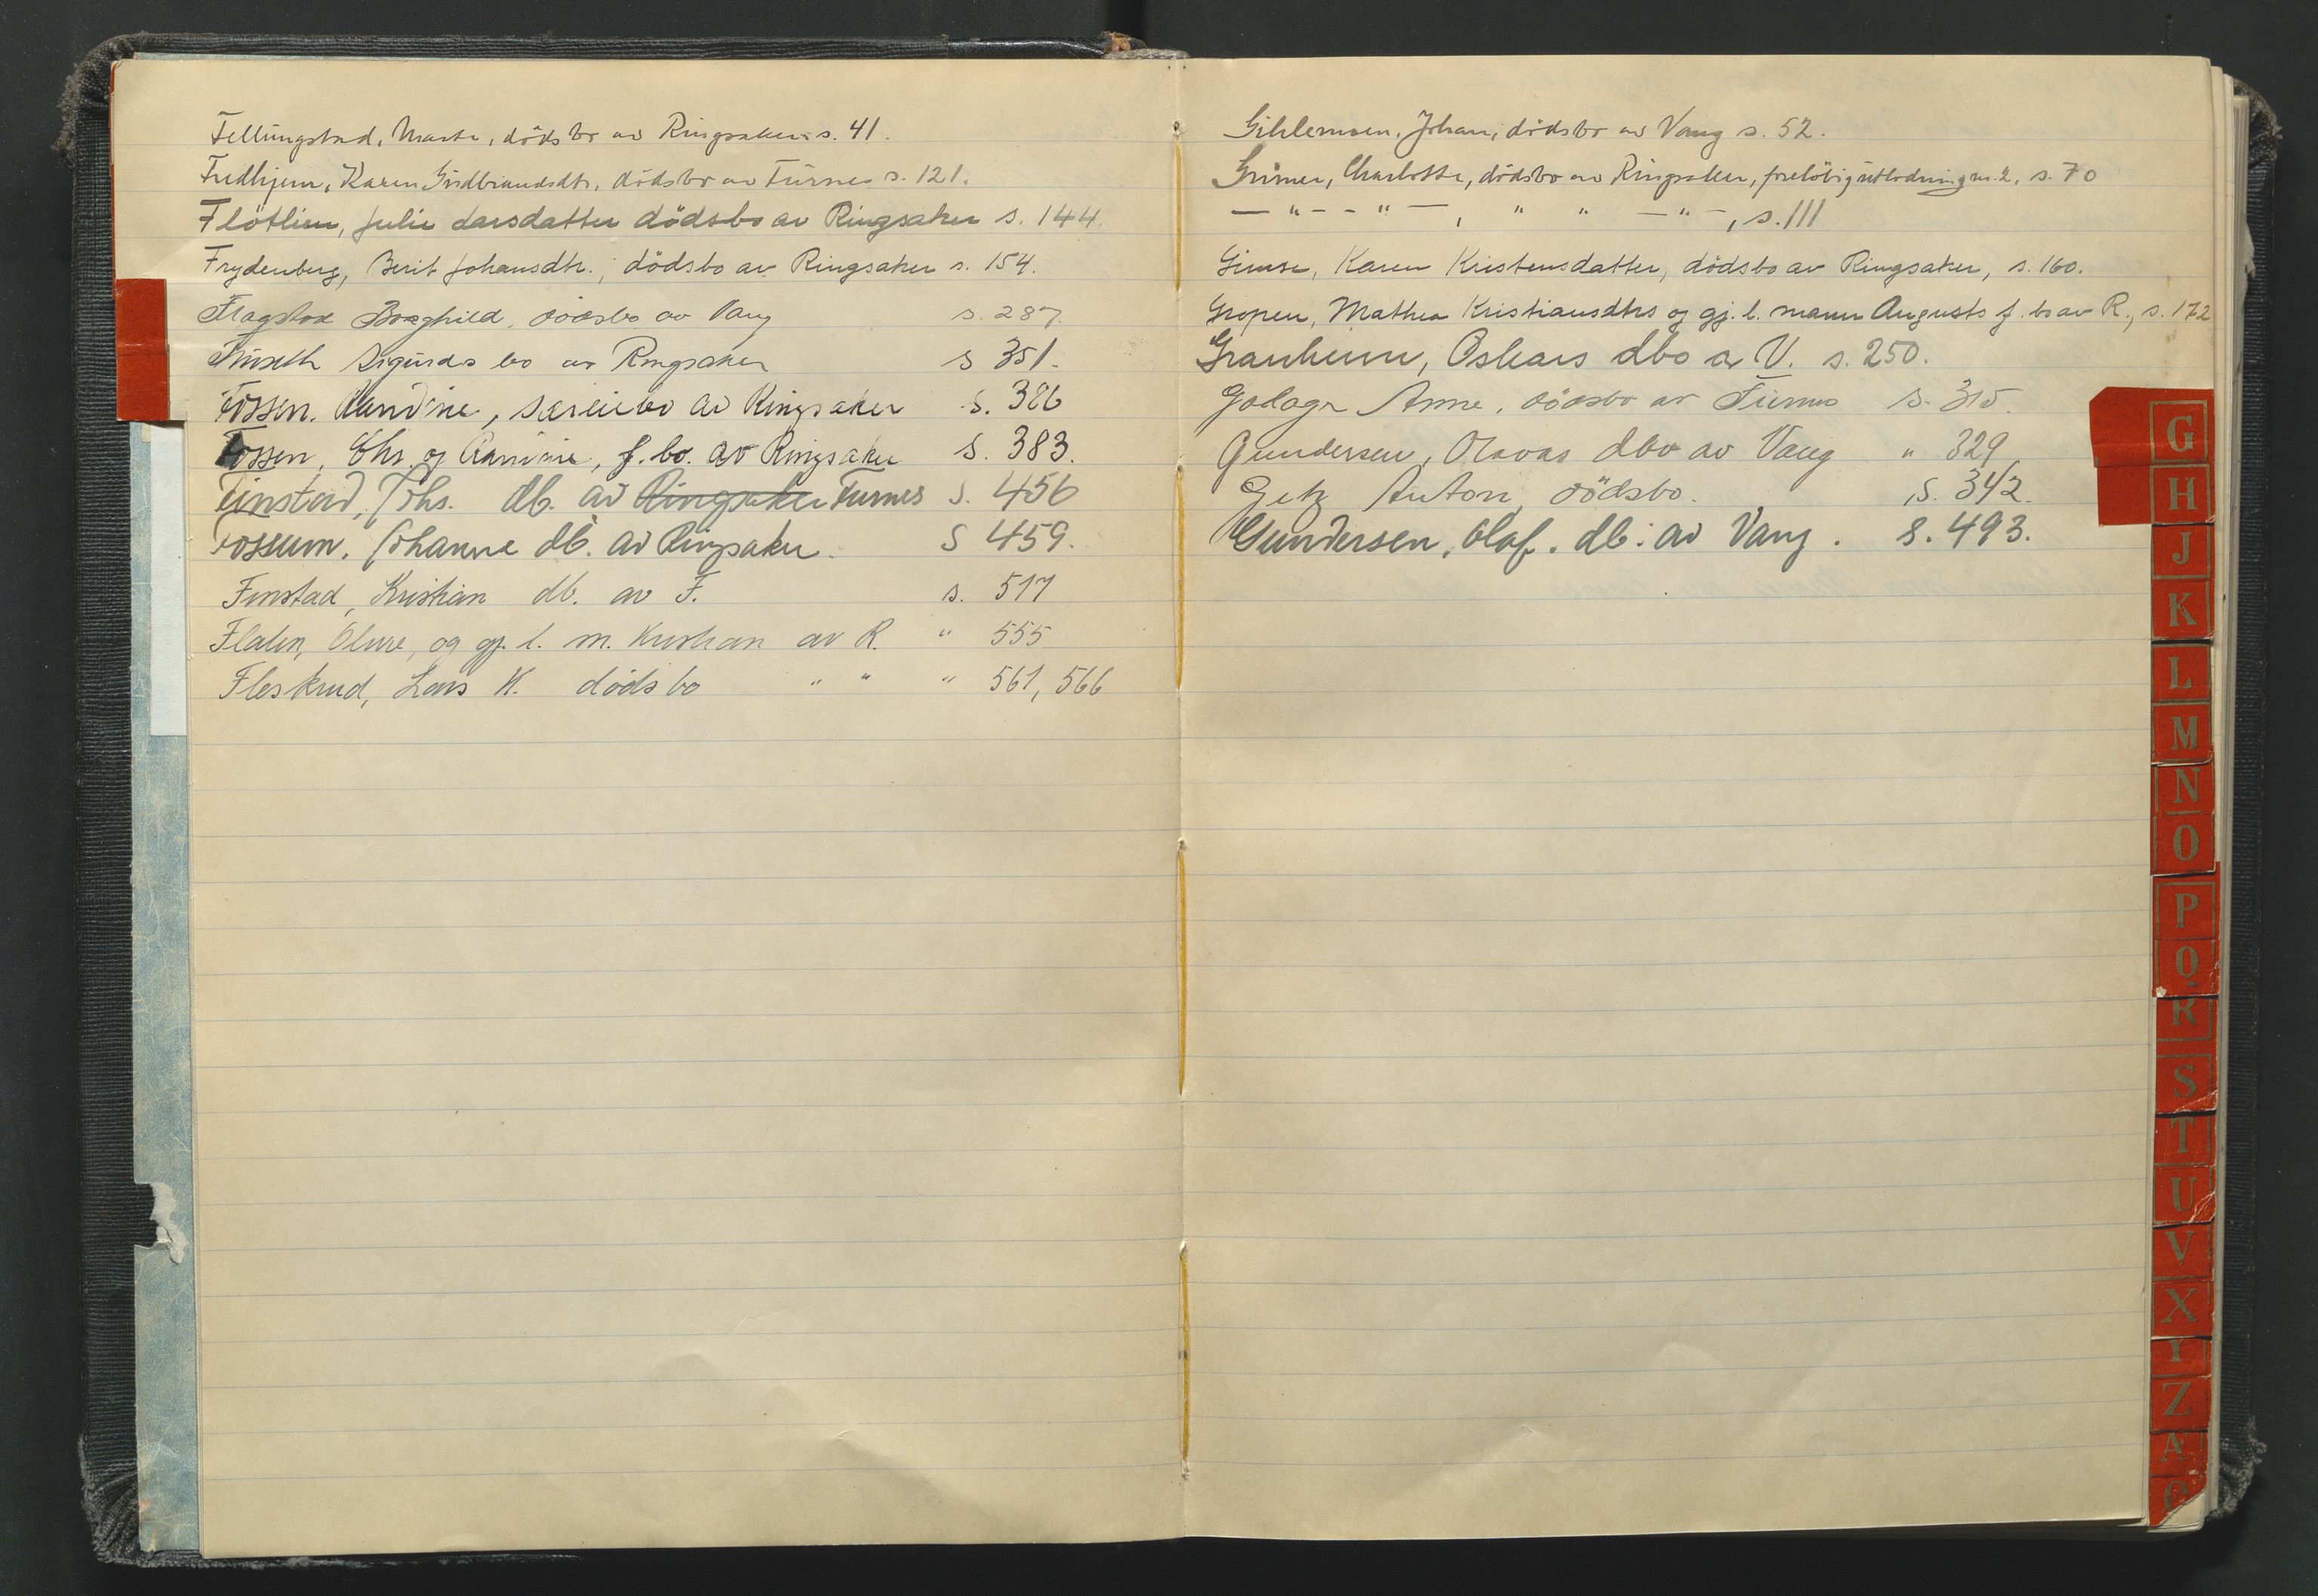 Fellungstad, Marte, dödsbo av Ringsaker s. 41.
Fredhjem, Karen Gudbrandsdtr, dödsbo av Furnes s. 121.
Flötlien, Julie Larsdatter dödsbo av Ringsaker s. 144.
Frydenberg, Berit Johansdtr., dödsbo av Ringsaker s. 154.
Flagstad Borghild, dödsbo av Vang s. 287.
Furuseth Sigurds bo av Ringsaker s 351.
Fossen. Randine, særeiebo av Ringsaker s. 386
Fossen, Chr. og Randine, f. bo. av Ringsaker s. 383.
Finstad, Johs. db. av Ringsaker Furnes s. 456
Fossum. Johanne db. av Ringsaker. s 459.
Finstad, Kristian db. av F. s. 517
Flaten, Oline, og gj. l. m. Kristian av R. " 555
Fleskrud, Lars K. dödsbo " " " 561, 566
Gihlemoen, Johan, dödsbo av Vang s. 52.
Grimer, Charlotte, dödsbo av Ringsaker, foreløbig utlodning nr. 2, s. 70
— " — — " — , " " — " —, s. 111
Gimse, Karen Kristensdatter, dödsbo av Ringsaker, s. 160.
Gropen, Mathea Kristiansdtrs og gj. l. mann Augusts f. bo av R., s. 172
Granheim, Oskars dbo a V. s. 250.
Anne, dödsbo av Furnes s. 315.
Gundersen, Olavas dbo av Vang " 329
Getz Anton, dödsbo. s. 342.
Gundersen, Olaf. db. av Vang. s. 493.
G
H
J
K
L
M
N
O
P
Q
R
S
T
U
V
X
Y
Z